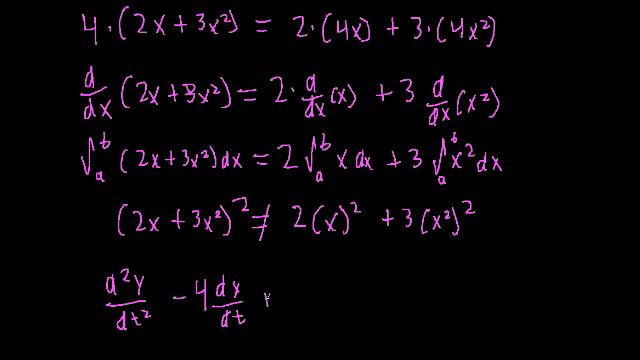 4·(2x+3x²) = 2·(4x) + 3·(4x²)
d/dx (2x+3x²) = 2·d/dx (x) + 3 d/dx (x²)
∫ₐᵇ (2x+3x²)dx = 2∫ₐᵇ x dx + 3∫ₐᵇ x² dx
(2x+3x²)² ≠ 2(x)² + 3(x²)²
d²y/dt² - 4 dy/dt